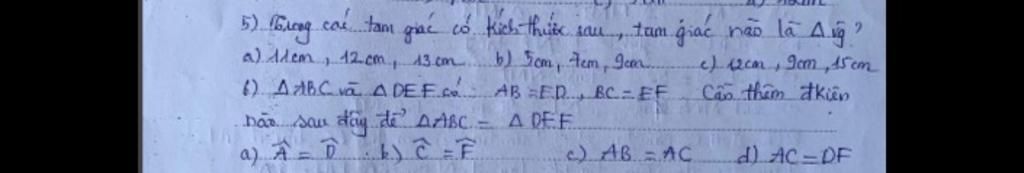 5) Trong các tam giác có kích thước sau, tam giác nào là Δ vg?
a) 11cm, 12cm, 13cm b) 5cm, 7cm, 9cm c) 12cm, 9cm, 15cm
6) ΔABC và ΔDEF có: AB = ED, BC = EF Cần thêm đkiện
nào sau đây để ΔABC = ΔDEF
a) Â = D̂ b) Ĉ = F̂ c) AB = AC d) AC = DF